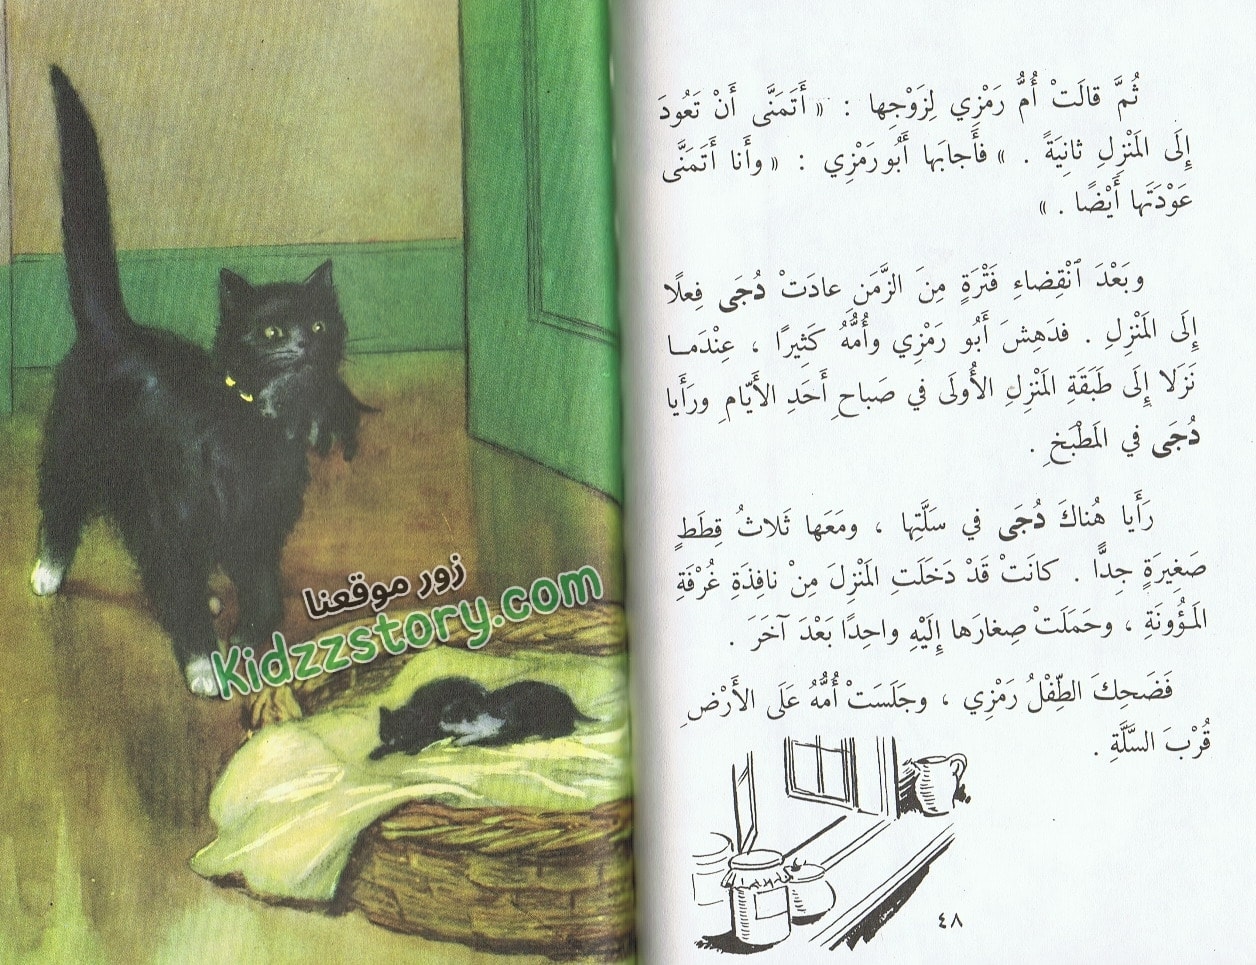 ثُمَّ قالَتْ أُمُّ رَمْزِي لِزَوْجِها : « أَتَمَنَّى أَنْ تَعُودَ
إِلَى المَنْزِلِ ثانِيَةً . » فأَجابَها أَبُو رَمْزِي : « وأَنا أَتَمَنَّى
عَوْدَتَها أَيْضًا . »
وبَعْدَ ٱنْقِضاءِ فَتْرَةٍ مِنَ الزَّمَنِ عادَتْ دُجَى فِعلًا
إِلَى المَنْزِلِ . فدَهِشَ أَبُو رَمْزِي وأُمُّهُ كَثِيرًا ، عِنْدَمـا
نَزَلا إِلَى طَبَقَةِ المَنْزِلِ الأُولَى في صَباحِ أَحَدِ الأَيّامِ ورَأَيا
دُجَى في المَطْبَخِ .
رَأَيا هُناكَ دُجَى في سَلَّتِها ، ومَعَها ثَلاثُ قِطَطٍ
صَغِيرَةٍ جِدًّا . كانَتْ قَدْ دَخَلَتِ المَنْزِلَ مِنْ نافِذَةِ غُرْفَةِ
المَؤُونَةِ ، وحَمَلَتْ صِغارَها إِلَيْهِ واحِدًا بَعْدَ آخَرَ .
فَضَحِكَ الطِّفْلُ رَمْزِي ، وجَلَسَتْ أُمُّهُ عَلَى الأَرْضِ
قُرْبَ السَّلَّةِ .
٤٨
زور موقعنا
Kidzzstory.com